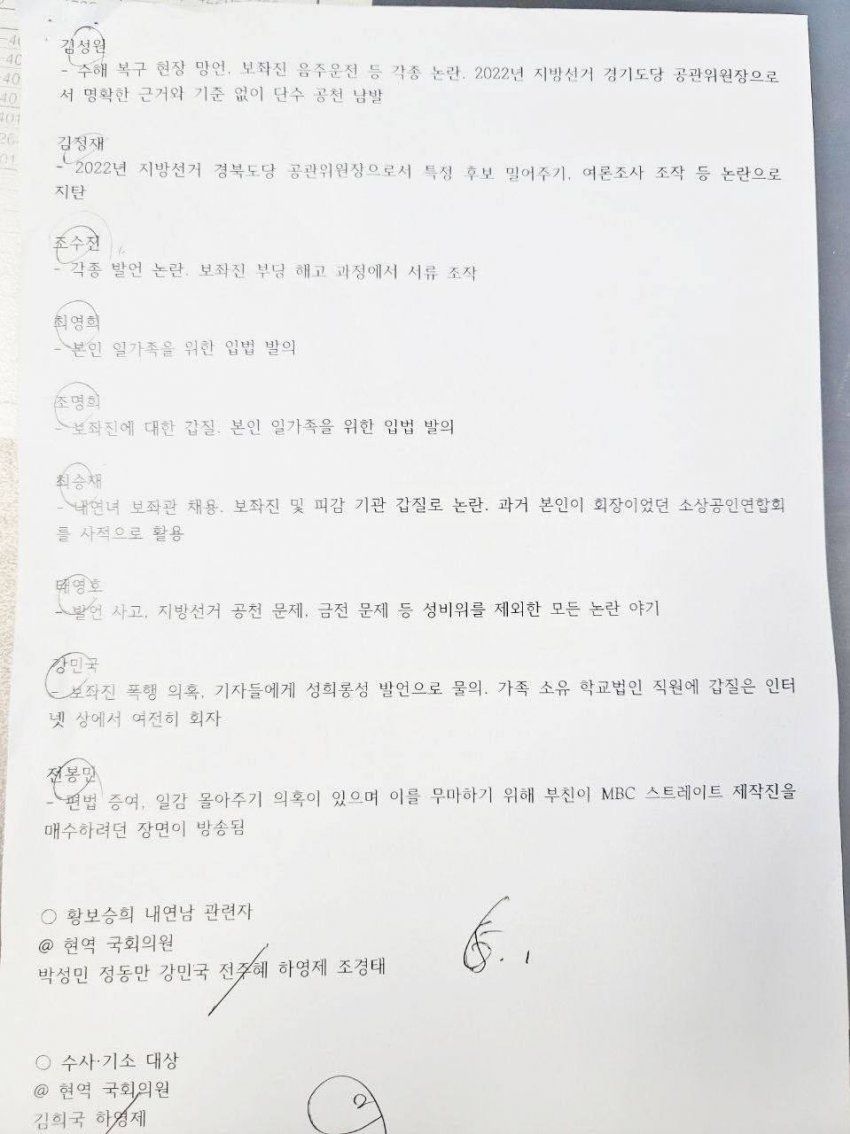 김성원
- 수해 복구 현장 망언, 보좌진 음주운전 등 각종 논란. 2022년 지방선거 경기도당 공관위원장으로
서 명확한 근거와 기준 없이 단수 공천 남발
김정재
- 2022년 지방선거 경북도당 공관위원장으로서 특정 후보 밀어주기, 여론조사 조작 등 논란으로
지탄
조수진
- 각종 발언 논란. 보좌진 부당 해고 과정에서 서류 조작
최영희
- 본인 일가족을 위한 입법 발의
조명희
- 보좌진에 대한 갑질. 본인 일가족을 위한 입법 발의
최승재
- 내연녀 보좌관 채용. 보좌진 및 피감 기관 갑질로 논란. 과거 본인이 회장이었던 소상공인연합회
를 사적으로 활용
태영호
- 발언 사고, 지방선거 공천 문제, 금전 문제 등 성비위를 제외한 모든 논란 야기
강민국
- 보좌진 폭행 의혹, 기자들에게 성희롱성 발언으로 물의. 가족 소유 학교법인 직원에 갑질은 인터
넷 상에서 여전히 회자
전봉민
- 편법 증여, 일감 몰아주기 의혹이 있으며 이를 무마하기 위해 부친이 MBC 스트레이트 제작진을
매수하려던 장면이 방송됨
○ 황보승희 내연남 관련자
@ 현역 국회의원
박성민 정동만 강민국 전주혜 하영제 조경태
○ 수사·기소 대상
@ 현역 국회의원
김희국 하영제
2